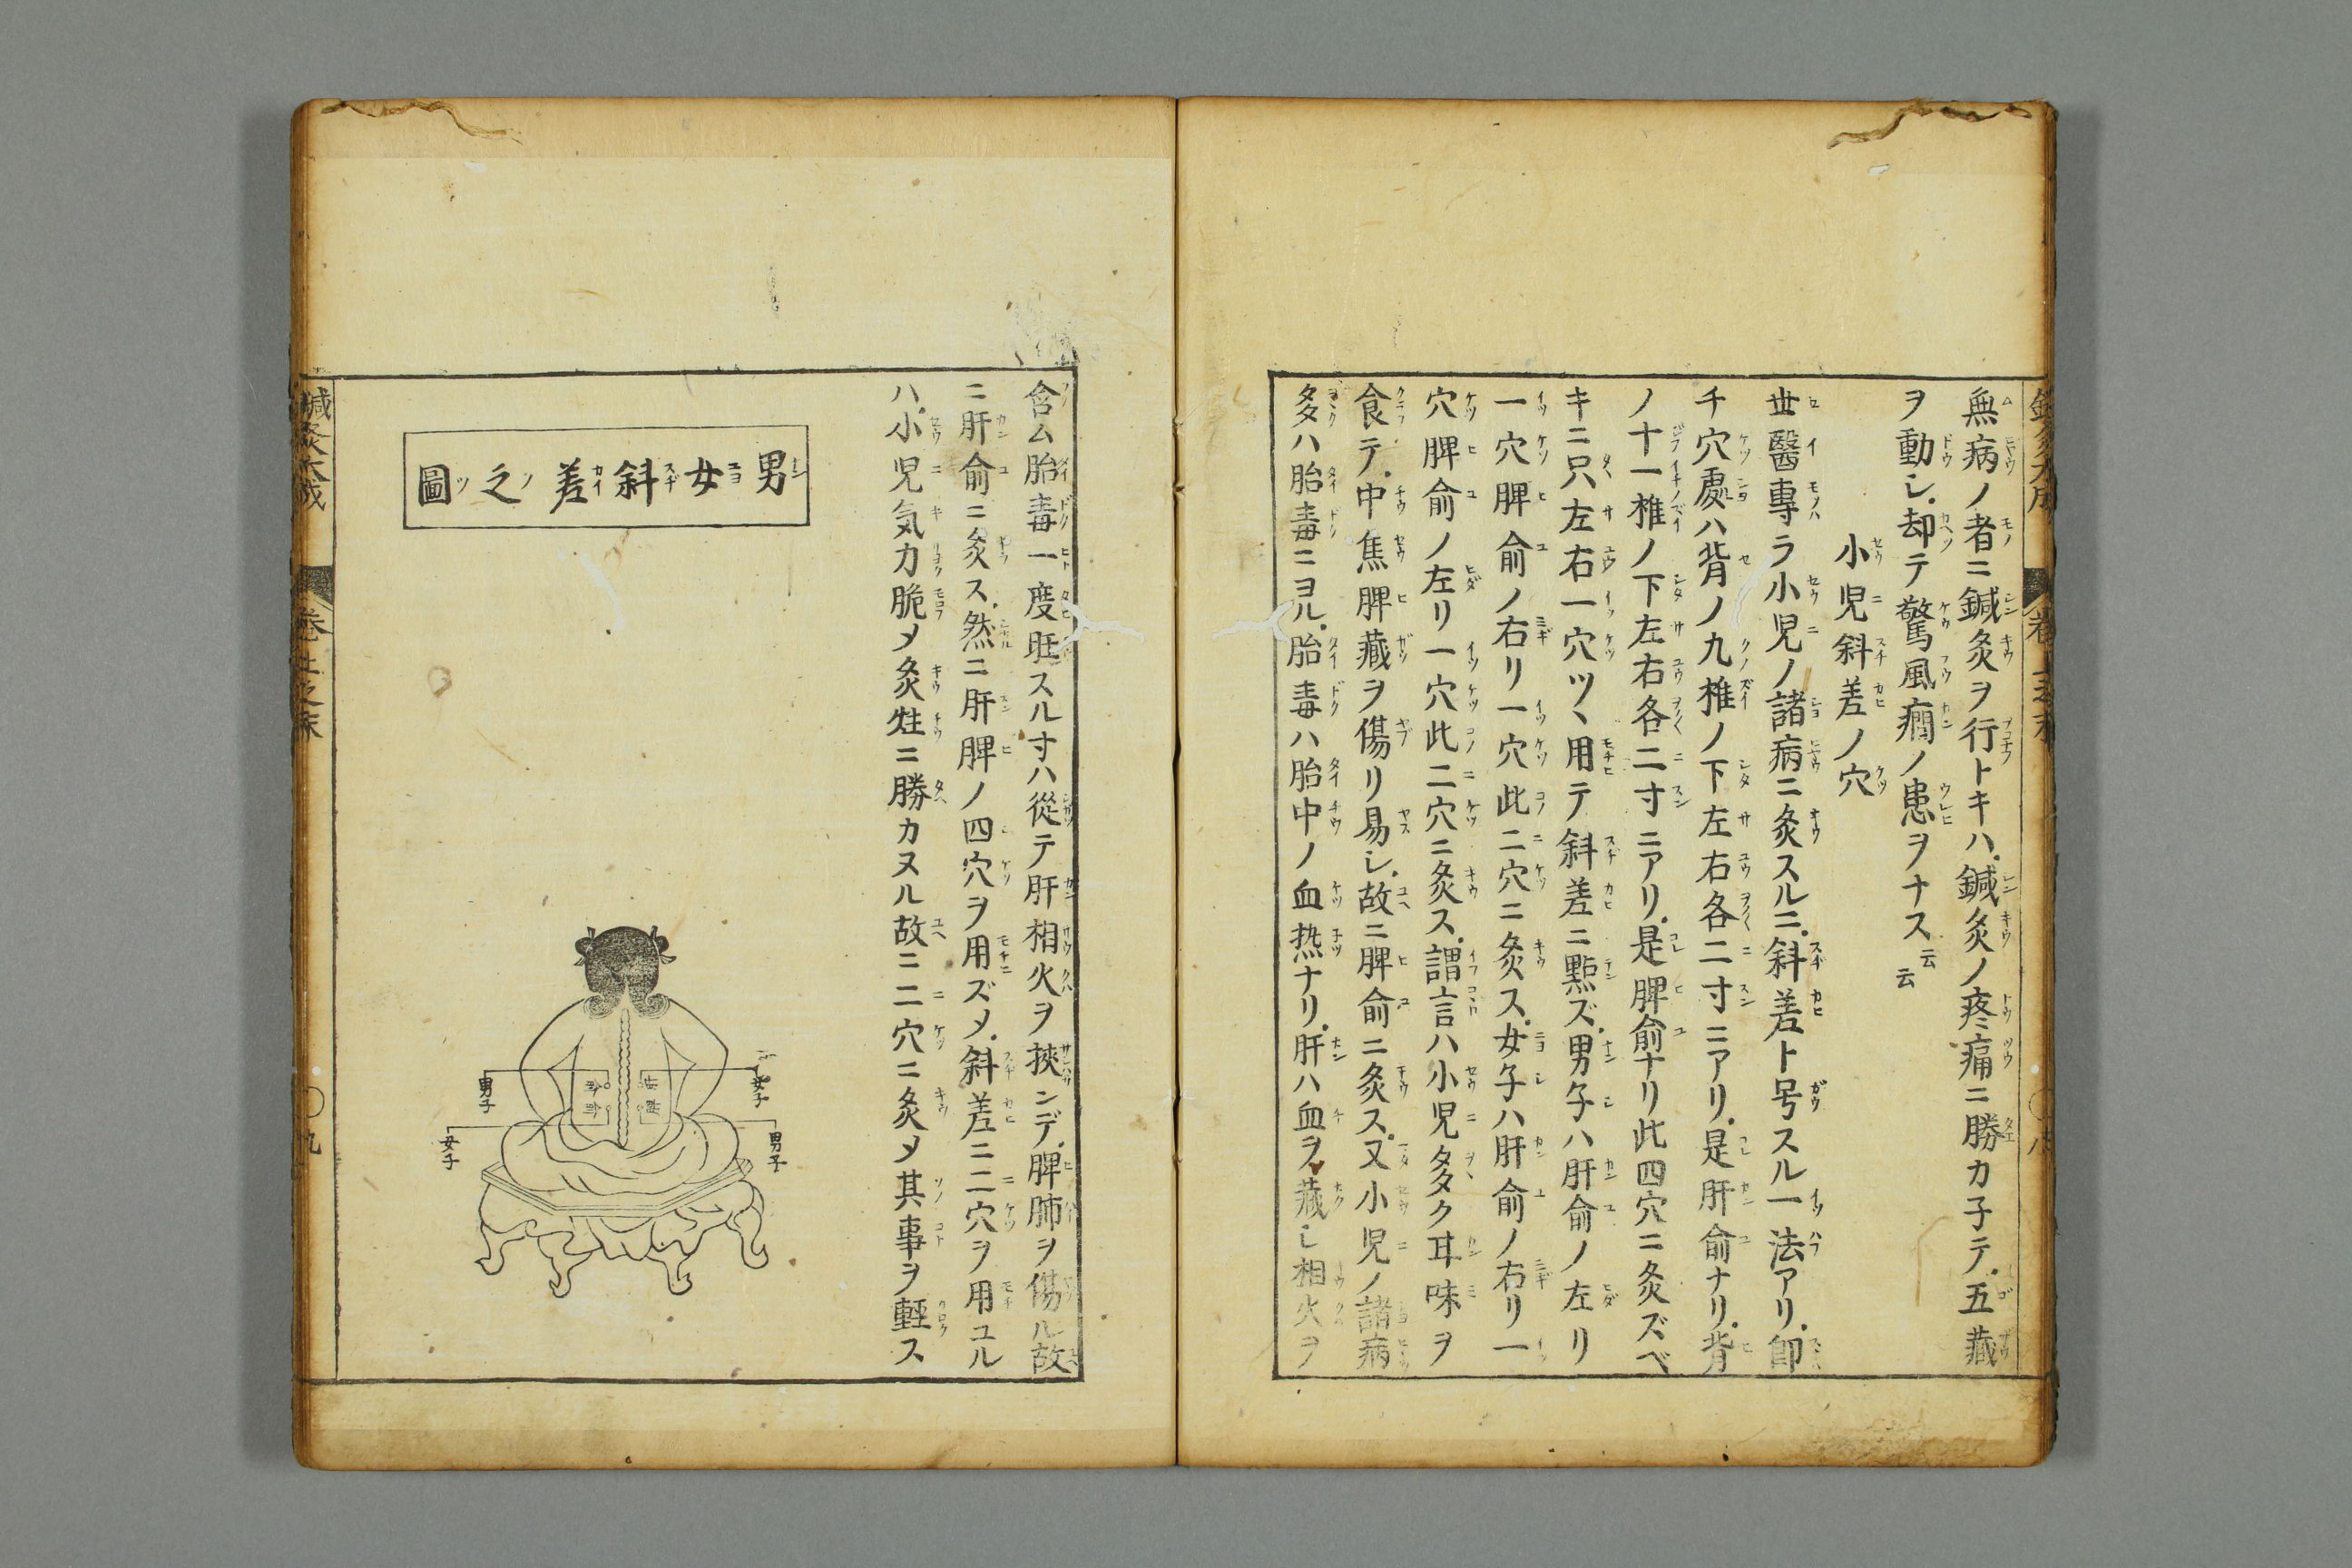 無病ノ者ニ鍼灸ヲ行トキハ.鍼灸ノ疼痛ニ勝カ子テ.五藏
ヲ動シ.却テ驚風癇ノ患ヲナス云云
小児斜差ノ穴
世醫專ラ小児ノ諸病ニ灸スルニ.斜差ト号スル一法アリ.即
チ穴處ハ背ノ九椎ノ下左右各二寸ニアリ.是肝俞ナリ.背
ノ十一椎ノ下左右各二寸ニアリ.是脾俞ナリ此四穴ニ灸ズベ
キニ只左右一穴ツヽ用テ斜差ニ㸃ズ.男子ハ肝俞ノ左リ
一穴脾俞ノ右リ一穴此二穴ニ灸ス.女子ハ肝俞ノ右リ一
穴脾俞ノ左リ一穴此二穴ニ灸ス.謂言ハ小児多ク耳味ヲ
食テ.中焦脾藏ヲ傷リ易シ.故ニ脾俞ニ灸ス.又小児ノ諸病
多ハ胎毒ニヨル.胎毒ハ胎中ノ血熱ナリ.肝ハ血ヲ藏シ相火ヲ
含ム胎毒一度旺スル寸ハ從テ肝相火ヲ挾ンデ.脾肺ヲ傷ル故
ニ肝俞ニ灸ス.然ニ肝脾ノ四穴ヲ用ズメ.斜差ニ二穴ヲ用ユル
ハ.小児気力脆メ灸炷ニ勝カヌル故ニ二穴ニ灸メ其事ヲ輕ス
男女斜差之圖
女子
男子
男子
女子
鍼灸大成
卷上之末
九